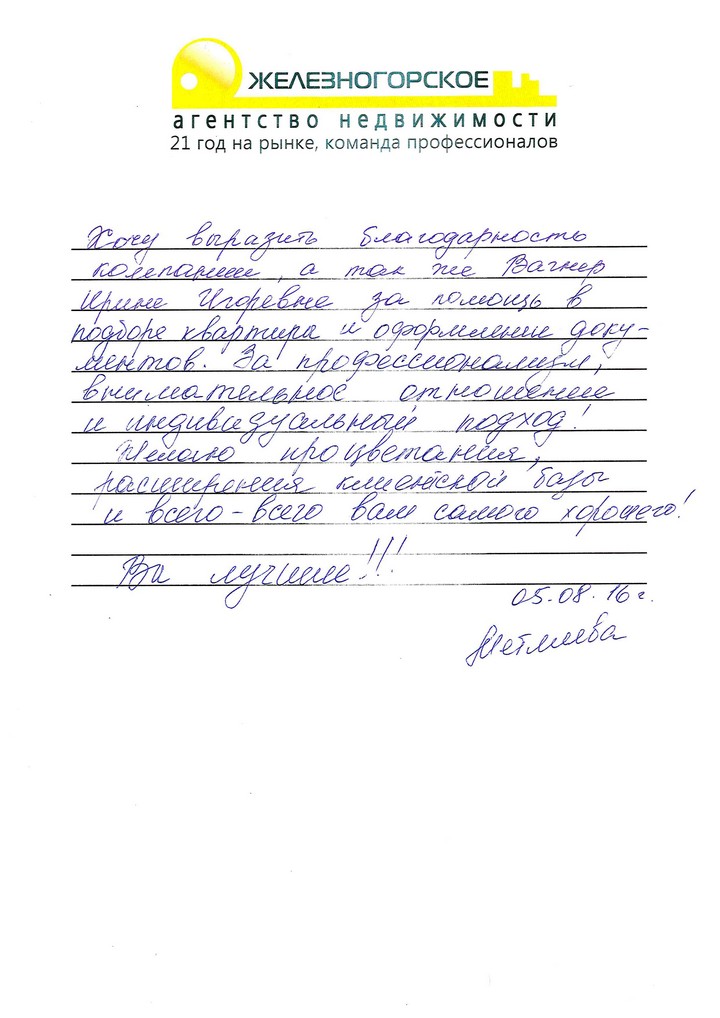 ЖЕЛЕЗНОГОРСКОЕ
агентство недвижимости
21 год на рынке, команда профессионалов
Хочу выразить благодарность
компании, а так же Вагнер
Ирине Игоревне за помощь в
подборе квартира и оформлении доку-
ментов. За профессионализм,
внимательное отношение
и индивидуальный подход!
Желаю процветания,
расширения клиентской базы
и всего-всего вам самого хорошего!
Вы лучшие!!!
05.08.16 г.